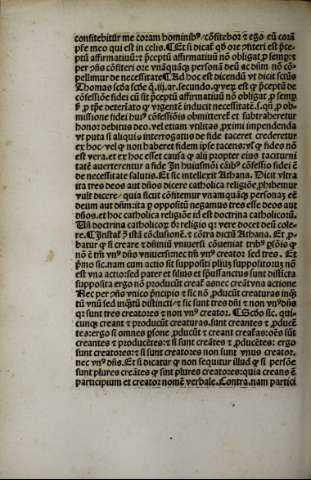 confitebitur me coram hominibꝰ, cōfitebor ⁊ ego eū corā
pr̄e meo qui est in celis. ¶ Et si dicat̉ qd ore ꝯfiteri est p̄ce-
ptū affirmatiuū: ⁊ p̄ceptū affirmatiuū nō obligat ꝓ semꝑ: ⁊
per ꝯn̄s cōfiteri ore vnāquāqꝫ personā deū ac dn̄m nō cō-
pellimur de necessitate. ¶ Ad hoc est dicendū vt dicit sctūs
Thomas scd̄a scd̄e q. iii. ar. secundo. qꝫ est ꝙ p̄ceptū de
cōfessiōe fidei cū sit p̄ceptū affirmatiuū nō obligat ꝓ semꝑ
ꝓ tꝑe determinato q̄ vrgente inducit necessitatē. s. qn̄ ꝓ ob-
missione fidei huiꝰ cōfessiōis obmitteret̉ ⁊ subtraheretur
honor debitus deo. vel etiam vtilitas ꝓximi impendenda
vt puta si aliquis interrogatus de fide taceret crederetur
ex hoc vel ꝙ non haberet fidem ipse tacens: vel ꝙ fides nō
est vera. et ex hoc esset causa ꝙ alii propter eius taciturni
tatē auerterentur a fide In huiusmōi casibꝰ cōfessio fidei ē
de necessitate salutis. Et sic intellexit Athana. Dicit vltra
ita tres deos aut dn̄os dicere catholica religiōe, ꝓhibemur
vult dicere. quia sicut cōfitemur vnamquāqꝫ personaꝫ eē
deum aut dn̄m: ita ꝑ oppositū negamus tres esse deos aut
dn̄os. et hoc catholica religiōe id est doctrina catholicorū.
Uñ doctrina catholicoꝝ dr̄ religio qꝫ vere docet deū cole-
re. ¶ Instat̉ ꝯ istā cōclusionē. ⁊ cōtra dictū Athana. Et ꝓ-
batur ꝙ si creare ⁊ dn̄iuū vniuersi cōueniat tribꝰ ꝑsōis ꝙ
nō ē tm̄ vnꝰ dn̄s vniuersi: nec tm̄ vnꝰ creator sed tres. Et
p̄mo sic. nam cum actio sit suppositi pluriū suppositorum nō
est vna actio: sed pater et filius et sp̄ussanctus sunt distincta
supposita ergo nō producūt creat̉ as nec creāt vna actione
Nec per ꝯn̄s vnico p̄ncipio ⁊ sic nō ꝓducūt creaturas inqꝫ
tū vnū sed inqꝫtū distincti: ⁊ sic sunt tres dn̄i ⁊ non vnꝰ dn̄s
qꝫ sunt tres creatores ⁊ non vnꝰ creator. ¶ Scd̄o sic. qui-
cunqꝫ creant ⁊ producūt creaturas. sunt creantes ⁊ ꝓducē-
tes: ergo si omnes ꝑsone ꝓducūt ⁊ creant creat̉as: oēs sūt
creantes ⁊ producētes: ⁊ si sunt creātes ⁊ ꝓducētes: ergo
sunt creatores: ⁊ si sunt creatores non sunt vnus creator.
nec vnꝰ dn̄s. Et si dicatur ꝙ non sequitur illud ꝙ si persōe
sunt plures creātes ꝙ sunt plures creatores: quia creans ē
participium et creator nomē verbale. Contra. nam partici